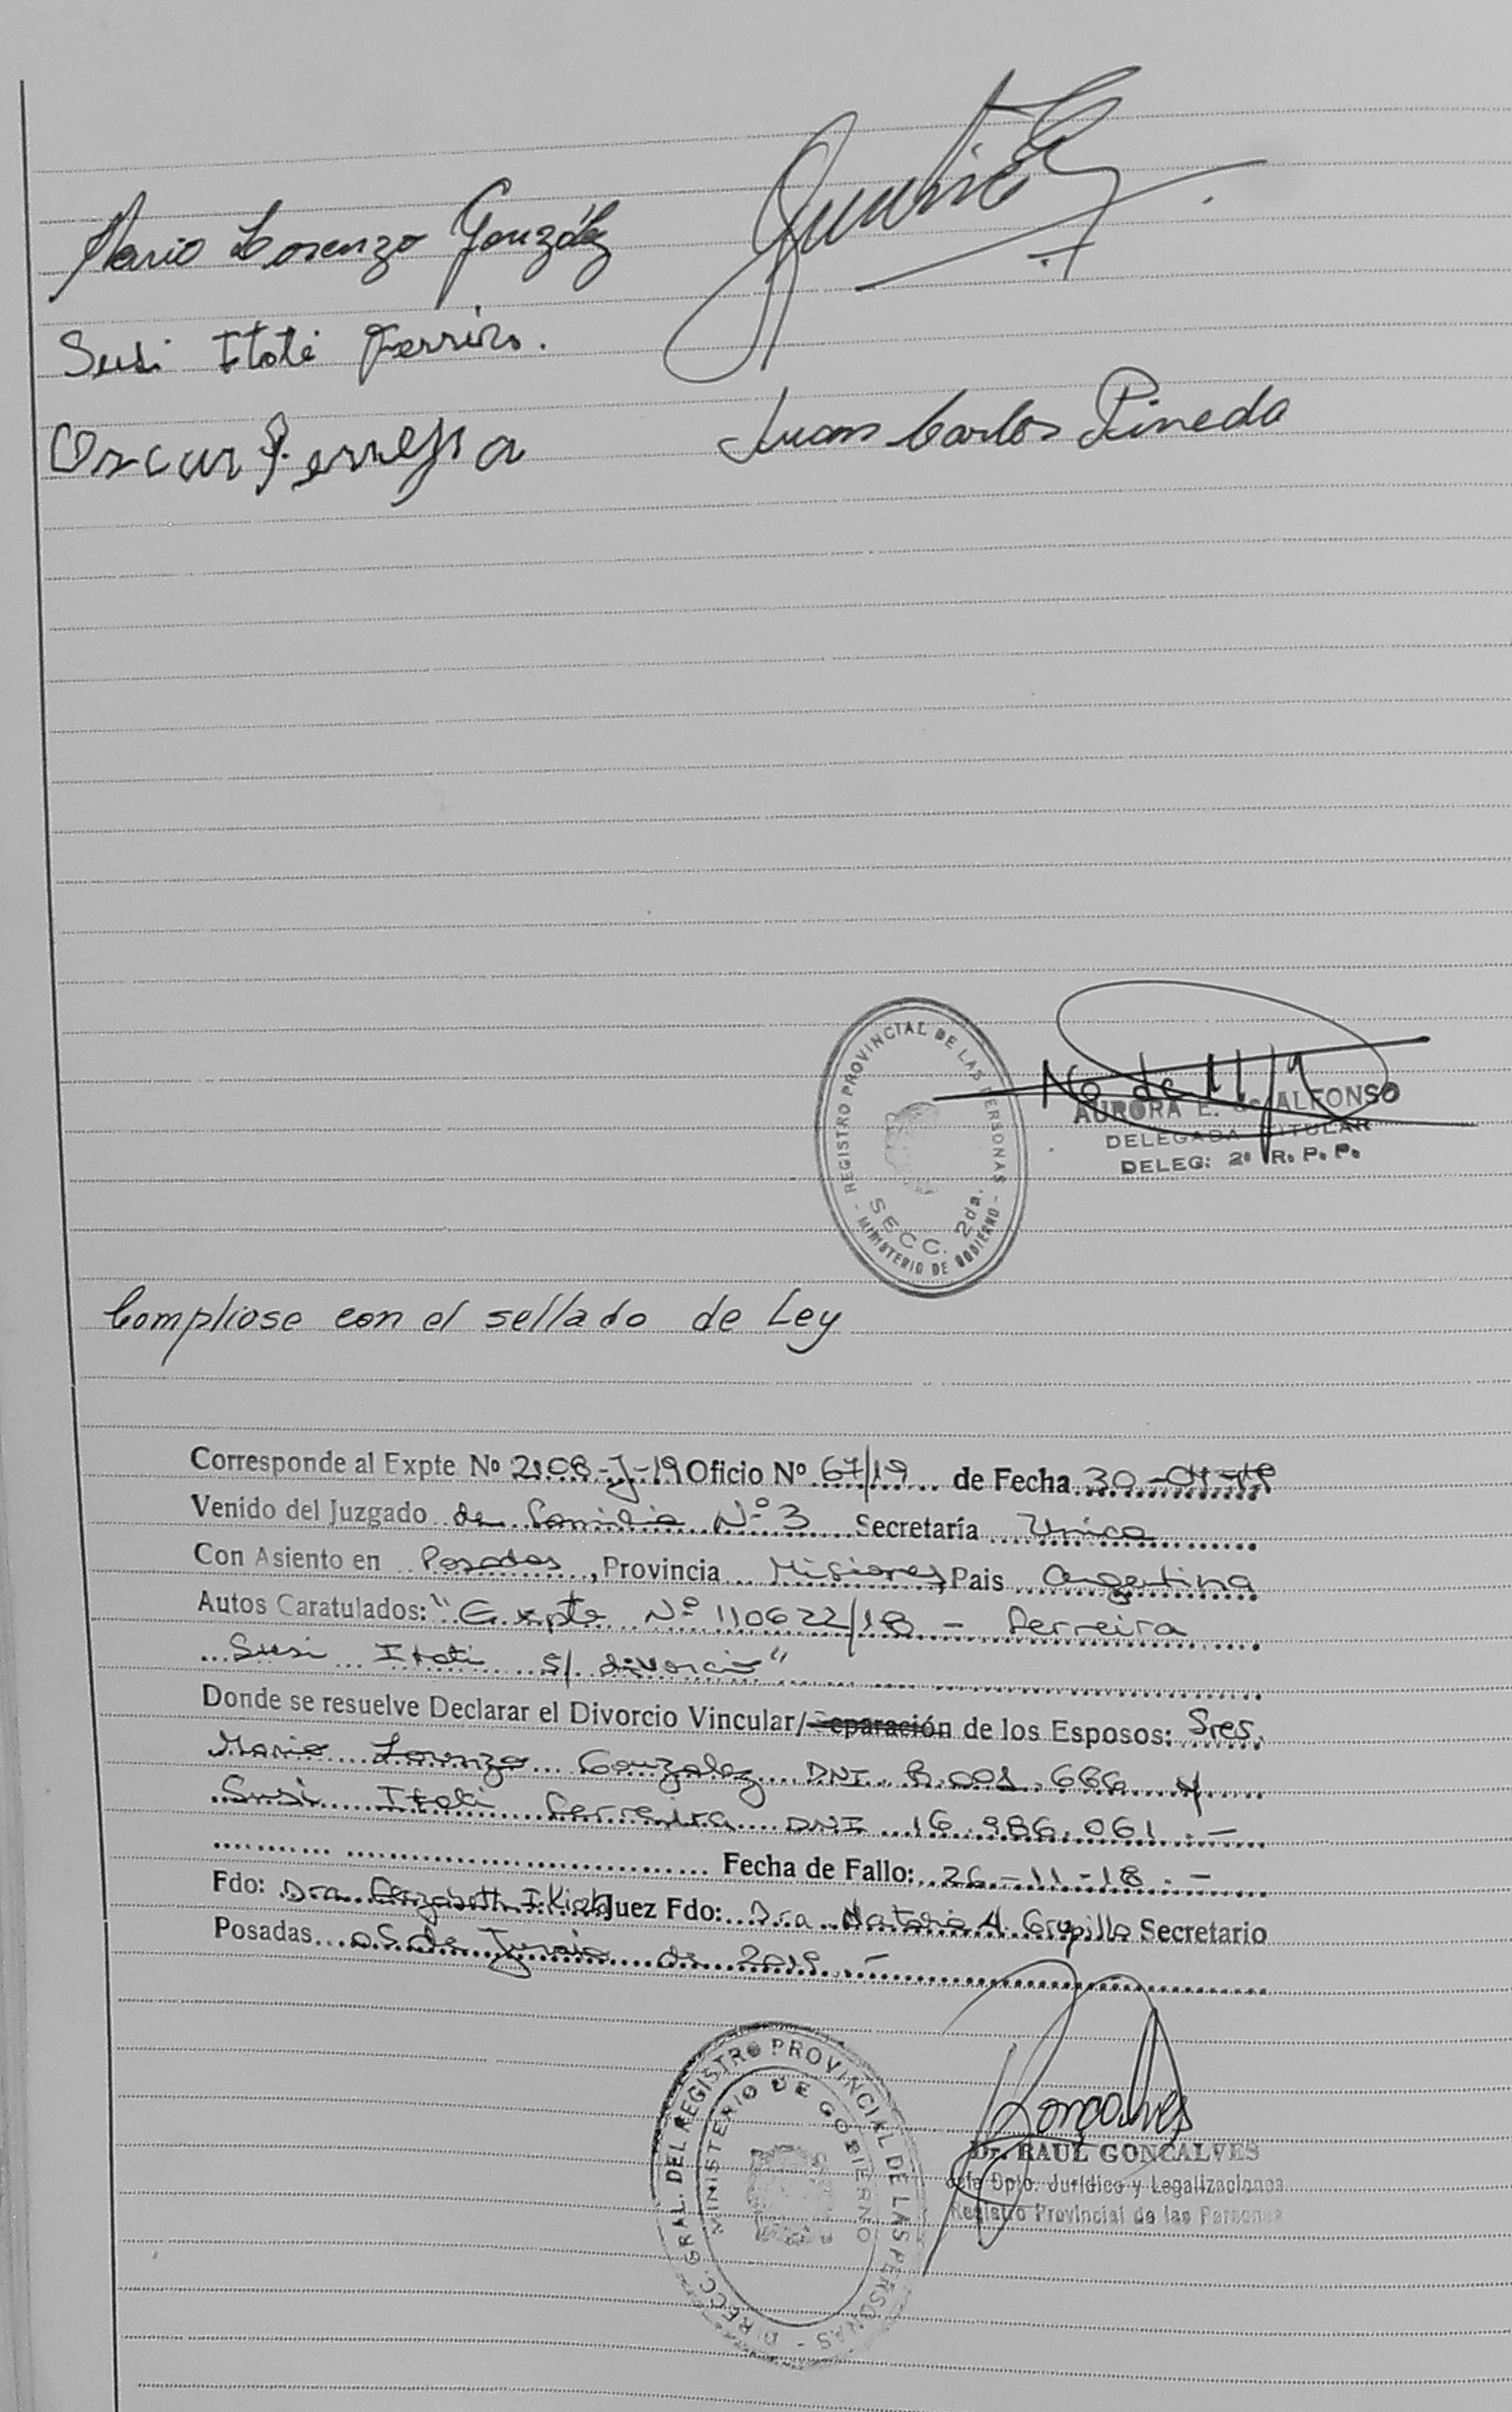 Mario Lorenzo González
Susi Itatí Ferreira.
Oscar Ferreyra
Juan Carlos Pineda
REGISTRO PROVINCIAL DE LAS PERSONAS
SECC. 2da.
- MINISTERIO DE GOBIERNO -
AURORA E. de ALFONSO
DELEGADA TITULAR
DELEG: 2ª R. P. P.
Compliose con el sellado de Ley
Corresponde al Expte Nº 2108-J-19 Oficio Nº 67/19 de Fecha 30-04-19
Venido del Juzgado de Familia Nº 3 Secretaría Unica
Con Asiento en Posadas, Provincia Misiones, Pais Argentina
Autos Caratulados: "Expte Nº 110622/18 - Ferreira
Susi Itati S/ divorcio"
Donde se resuelve Declarar el Divorcio Vincular/Separación de los Esposos: Sres.
Mario Lorenzo Gonzalez DNI 8.001.666 y
Susi Itati Ferreira DNI 16.986.061.-
Fecha de Fallo: 26-11-18.-
Fdo: Dra. Juez Fdo: Dra. A. Secretario
Posadas 05 de Junio de 2019.-
DIRECC. GRAL. DEL REGISTRO PROVINCIAL DE LAS PERSONAS -
MINISTERIO DE GOBIERNO
Gonçalves
Dr. RAUL GONCALVES
Jefe Dpto. Jurídico y Legalizaciones
Registro Provincial de las Personas